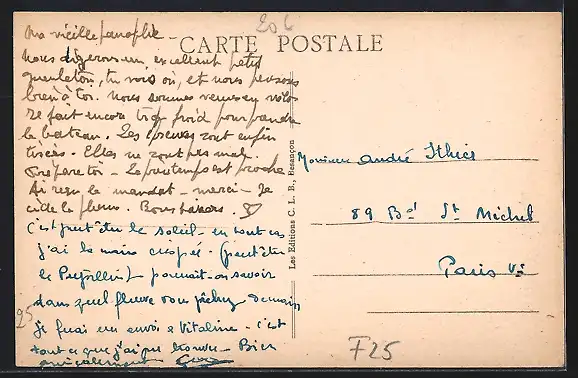 Ma vieille panoplie -
CARTE POSTALE
Nous digérons un excellent petit
gueuleton, tu vois où, et nous pensons
bien à toi. Nous sommes venues en vélo
Il fait encore trop froid pour prendre
le bateau. Les épreuves sont enfin
tirées. Elles ne sont pas mal.
Prépare toi - Le printemps est proche
Ai reçu le mandat - merci - Je
cède la plume. Bons baisers.
C'est peut'être le soleil - en tout cas
j'ai la main crispée - (peut'être
le ) pourrait-on savoir
dans quel fleuve vous pêchez demain
je ferai un envoi à Vitaline - C'est
tout ce que j'ai pu trouver - Bien
amicalement
Les Editions C. L. B., Besançon
Monsieur André Ithier
89 Bd St Michel
Paris Ve
206
25
F25